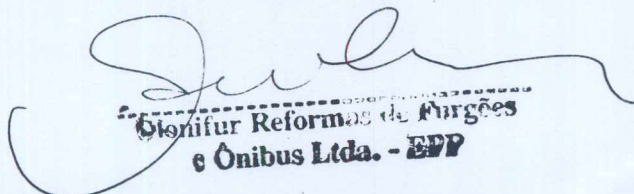 Dionifur Reformas de Furgões
e Ônibus Ltda. - EPP